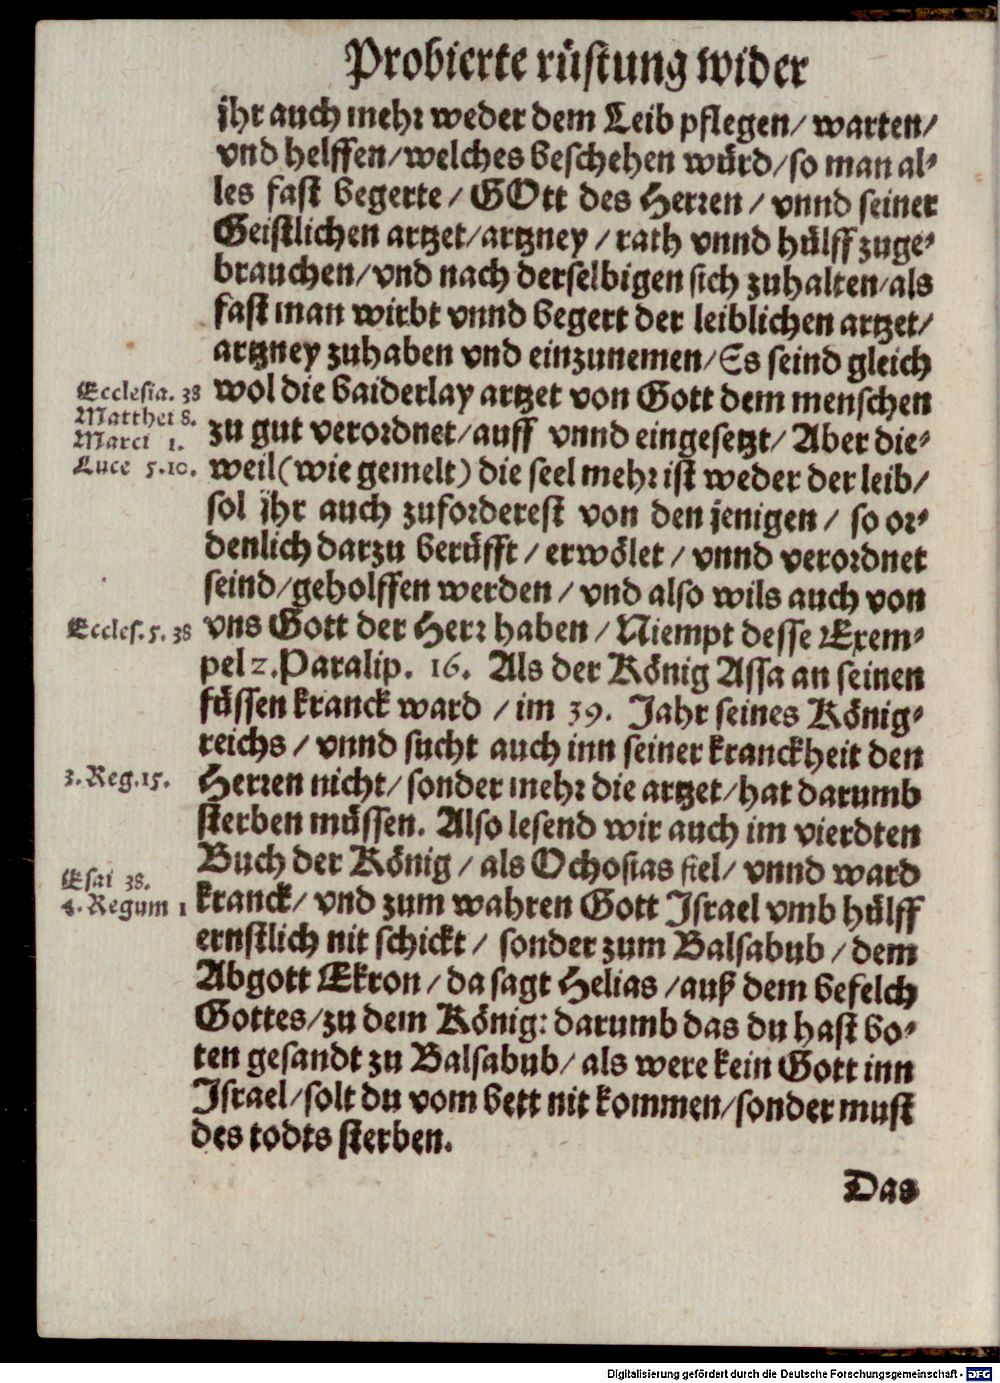 Probierte rüstung wider
jhr auch mehr weder dem Leib pflegen/ warten/
vnd helffen/welches beschehen würd/so man al-
les fast begerte/ GOtt des Herren/ vnnd seiner
Geistlichen artzet/artzney/ rath vnnd hülff zuge-
brauchen/vnd nach derselbigen sich zuhalten/als
fast man wirbt vnnd begert der leiblichen artzet/
artzney zuhaben vnd einzunemen/Es seind gleich
Ecclesia. 38
Matthei 8.
Marci 1.
Luce 5.10.
wol die baiderlay artzet von Gott dem menschen
zu gut verordnet/auff vnnd eingesetzt/ Aber die-
weil (wie gemelt) die seel mehr ist weder der leib/
sol jhr auch zuforderest von den jenigen/ so or-
denlich darzu berüfft/ erwölet/ vnnd verordnet
seind/geholffen werden/ vnd also wils auch von
Eccles. 5. 38
vns Gott der Herr haben/ Niempt desse Exem-
pel 2. Paralip. 16. Als der König Assa an seinen
füssen kranck ward/ im 39. Jahr seines König-
reichs/ vnnd sucht auch inn seiner kranckheit den
3. Reg. 15.
Herren nicht/ sonder mehr die artzet/hat darumb
sterben müssen. Also lesend wir auch im vierdten
Buch der König/ als Ochosias fiel/ vnnd ward
Esai 38.
4. Regum 1
kranck/ vnd zum wahren Gott Israel vmb hülff
ernstlich nit schickt/ sonder zum Balsabub/ dem
Abgott Ekron/ da sagt Helias/auß dem befelch
Gottes/zu dem König: darumb das du hast bo-
ten gesandt zu Balsabub/ als were kein Gott inn
Israel/solt du vom bett nit kommen/sonder must
des todts sterben.
Das
Digitalisierung gefördert durch die Deutsche Forschungsgemeinschaft - DFG